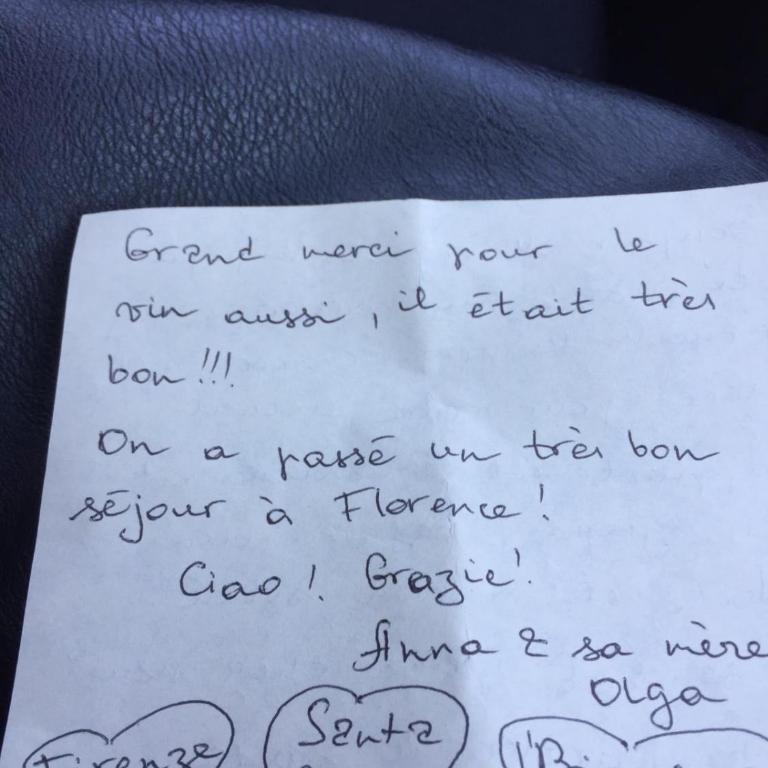 Grand merci pour le
vin aussi, il était très
bon!!!
On a passé un très bon
séjour à Florence!
Ciao! Grazie!
Anna & sa mère
Olga
Firenze Santa